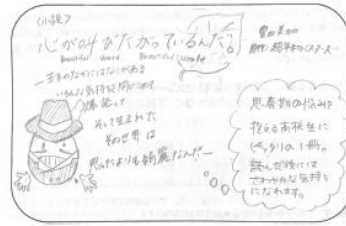 〈小説〉
心が叫びたがってるんだ。
Beautiful Word Beautiful World
豊田美加
原作:超平和バスターズ
―玉子のなかにはなにがある
いろんな気持ちを閉じ込めて
爆発して
そして生まれた
その世界は
思ったよりも綺麗なんだ―
思春期の悩みを
抱える高校生に
ピッタリの1冊。
読んだ後には
さわやかな気持ち
になれます。